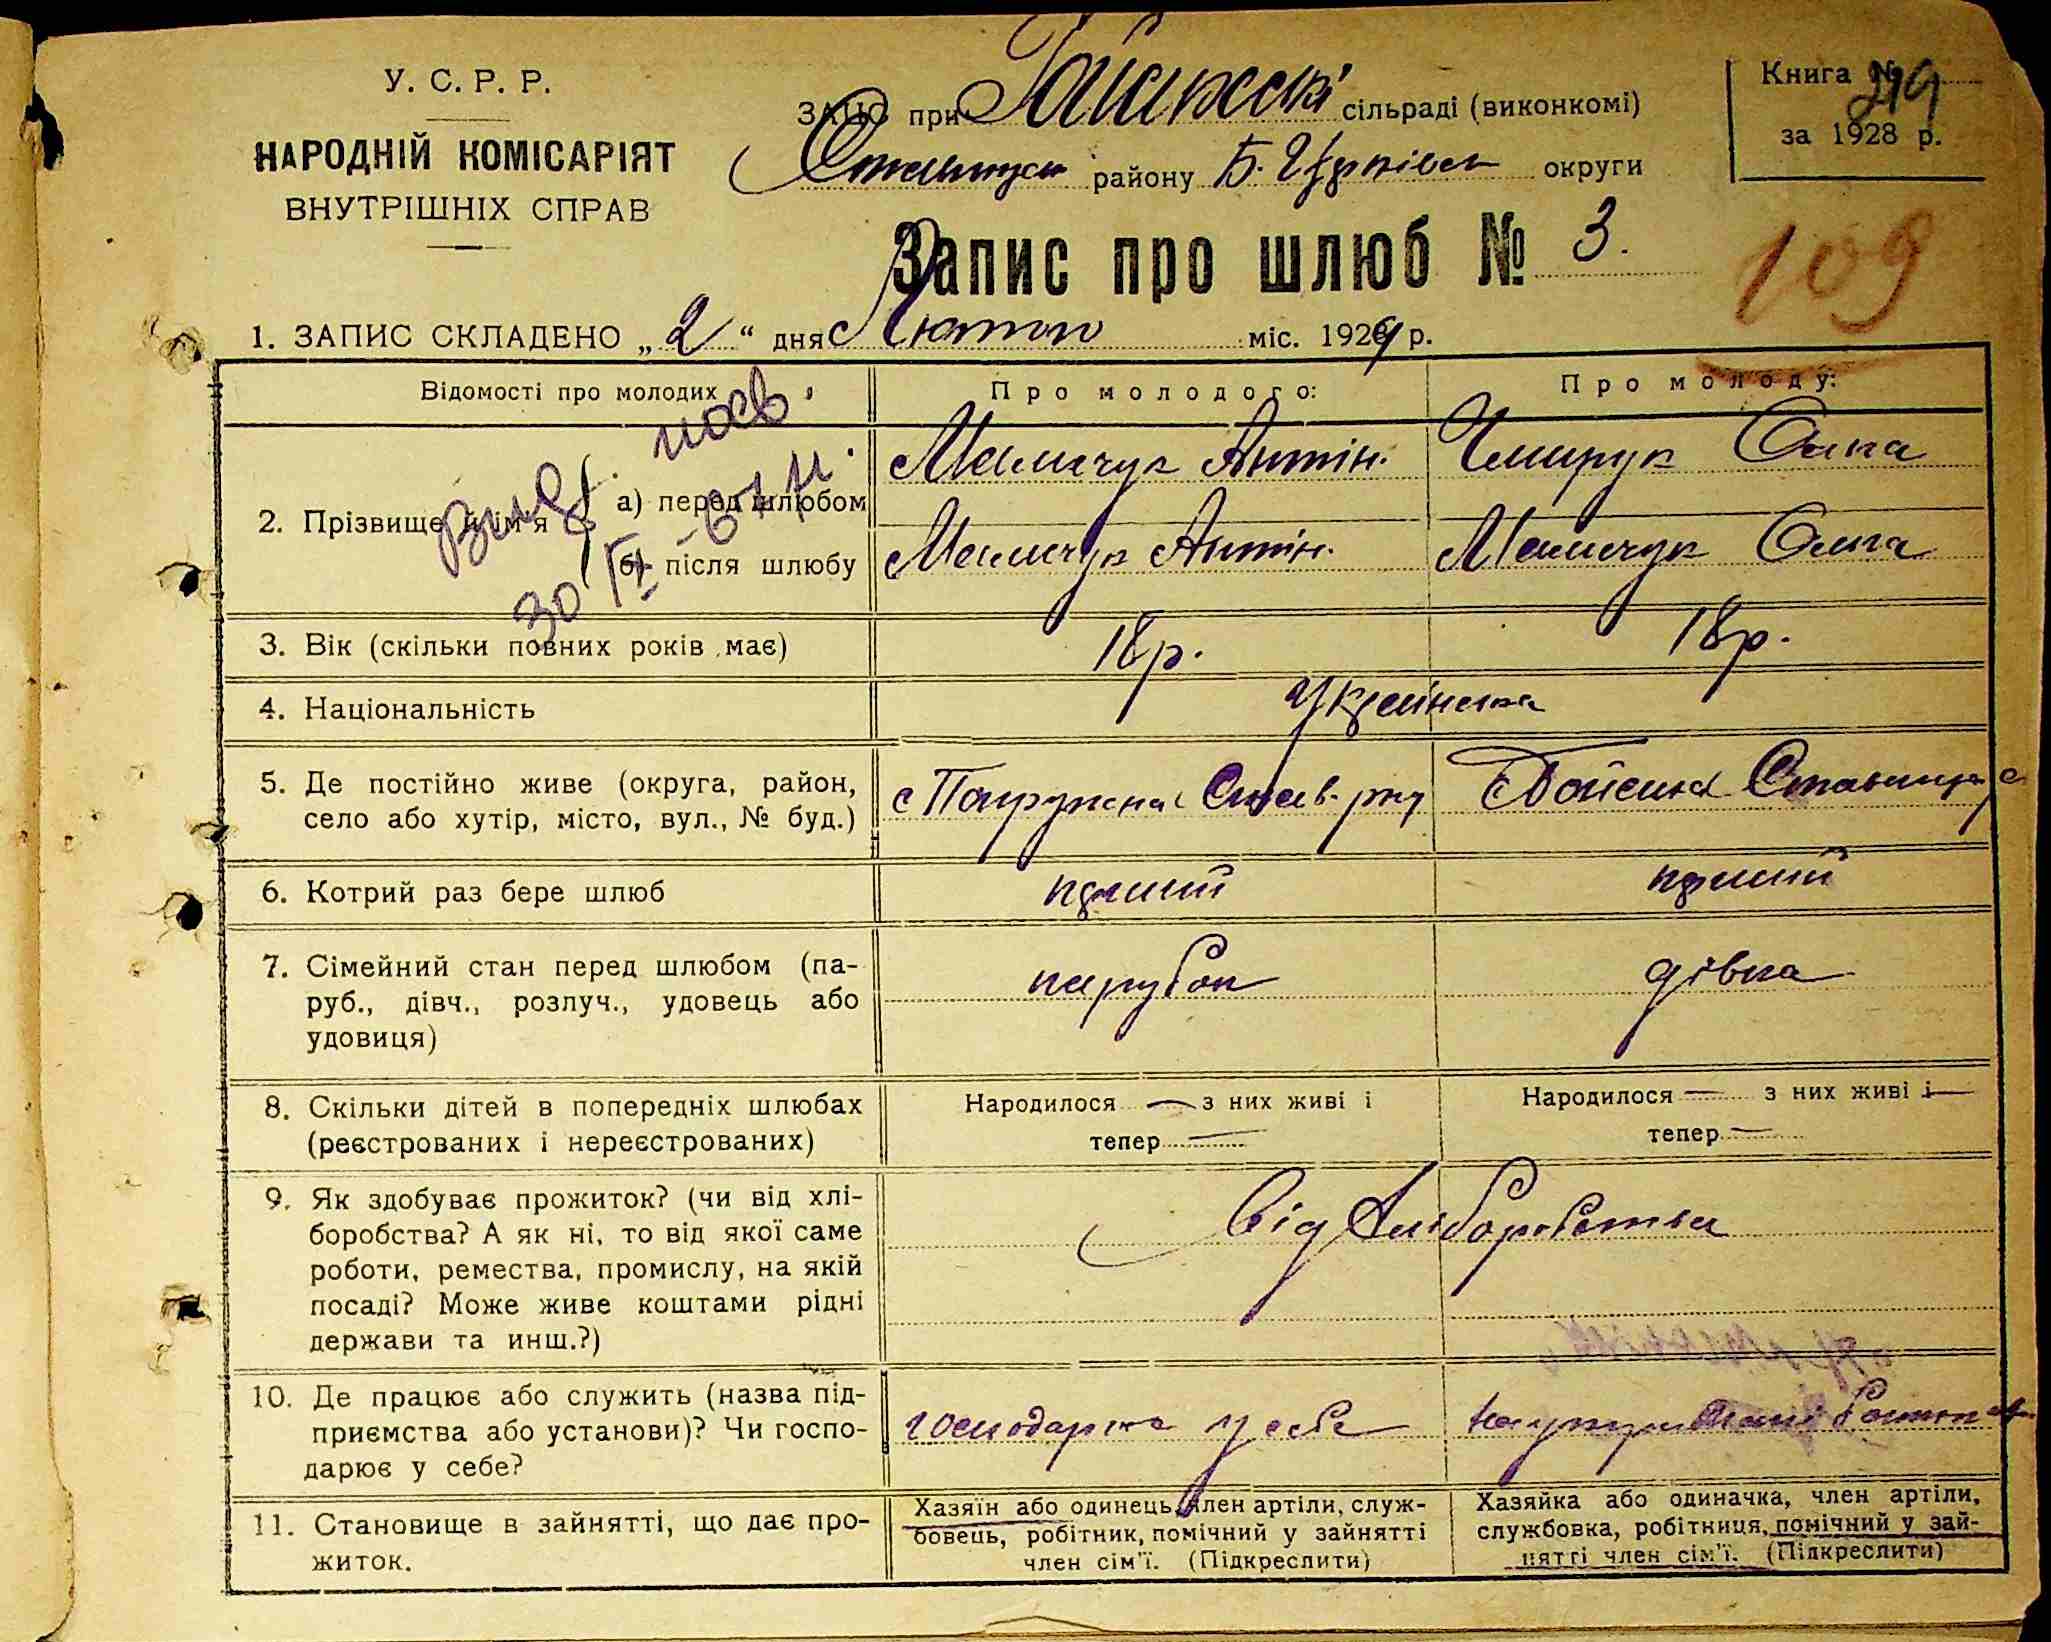 У. С. Р. Р.
НАРОДНІЙ КОМІСАРІЯТ
ВНУТРІШНІХ СПРАВ
ЗАЦС при сільраді (виконкомі)
району Б. Церківськ округи
Книга № 219
за 1928 р.
Запис про шлюб № 3.
109
1. ЗАПИС СКЛАДЕНО „2“ дня Лютого міс. 1929 р.
Відомості про молодих
Про молодого:
Про молоду:
2. Прізвище й ім'я
а) перед шлюбом
Мамчук Антін.
Чмирук Олга
б) після шлюбу
Мамчук Антін.
Мамчук Олга
3. Вік (скільки повних років має)
18 р.
18 р.
4. Національність
Українська
5. Де постійно живе (округа, район,
село або хутір, місто, вул., № буд.)
6. Котрий раз бере шлюб
перший
перший
7. Сімейний стан перед шлюбом (па-
руб., дівч., розлуч., удовець або
удовиця)
парубок
дівка
8. Скільки дітей в попередніх шлюбах
(реєстрованих і нереєстрованих)
Народилося — з них живі і
тепер —
Народилося — з них живі і —
тепер —
9. Як здобуває прожиток? (чи від хлі-
боробства? А як ні, то від якої саме
роботи, ремества, промислу, на якій
посаді? Може живе коштами рідні
держави та инш.?)
Від хліборобства
10. Де працює або служить (назва під-
приємства або установи)? Чи госпо-
дарює у себе?
господарка у себе
11. Становище в зайнятті, що дає про-
житок.
Хазяїн або одинець, член артіли, служ-
бовець, робітник, помічний у зайнятті
член сім'ї. (Підкреслити)
Хазяйка або одиначка, член артіли,
службовка, робітниця, помічний у зай-
нятті член сім'ї. (Підкреслити)